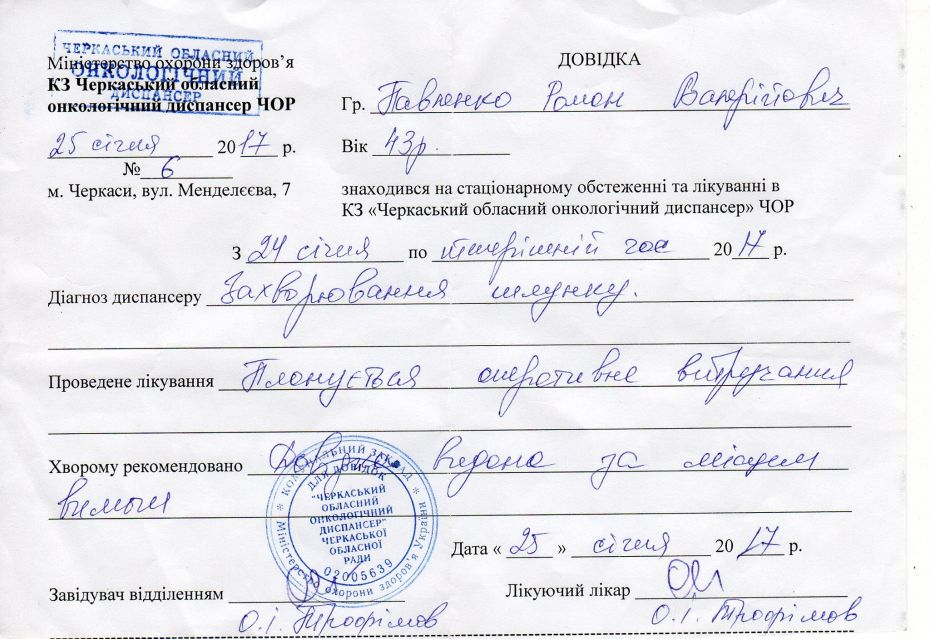 ЧЕРКАСЬКИЙ ОБЛАСНИЙ
ОНКОЛОГІЧНИЙ
ДИСПАНСЕР
Міністерство охорони здоров’я
КЗ Черкаський обласний
онкологічний диспансер ЧОР
25 січня 2017 р.
№ 6
м. Черкаси, вул. Менделєєва, 7
ДОВІДКА
Гр. Павленко Роман Валерійович
Вік 43р.
знаходився на стаціонарному обстеженні та лікуванні в
КЗ «Черкаський обласний онкологічний диспансер» ЧОР
З 24 січня по теперішній час 2017 р.
Діагноз диспансеру Захворювання шлунку.
Проведене лікування Планується оперативне втручання
Хворому рекомендовано Довідка видана за місцем
вимоги
КОМУНАЛЬНИЙ ЗАКЛАД * Міністерство охорони здоров'я України *
ДЛЯ ДОВІДОК
"ЧЕРКАСЬКИЙ
ОБЛАСНИЙ
ОНКОЛОГІЧНИЙ
ДИСПАНСЕР"
ЧЕРКАСЬКОЇ
ОБЛАСНОЇ
РАДИ
02005639
Дата « 25 » січня 2017 р.
Завідувач відділенням
О.І. Трофімов
Лікуючий лікар
О.І. Трофімов